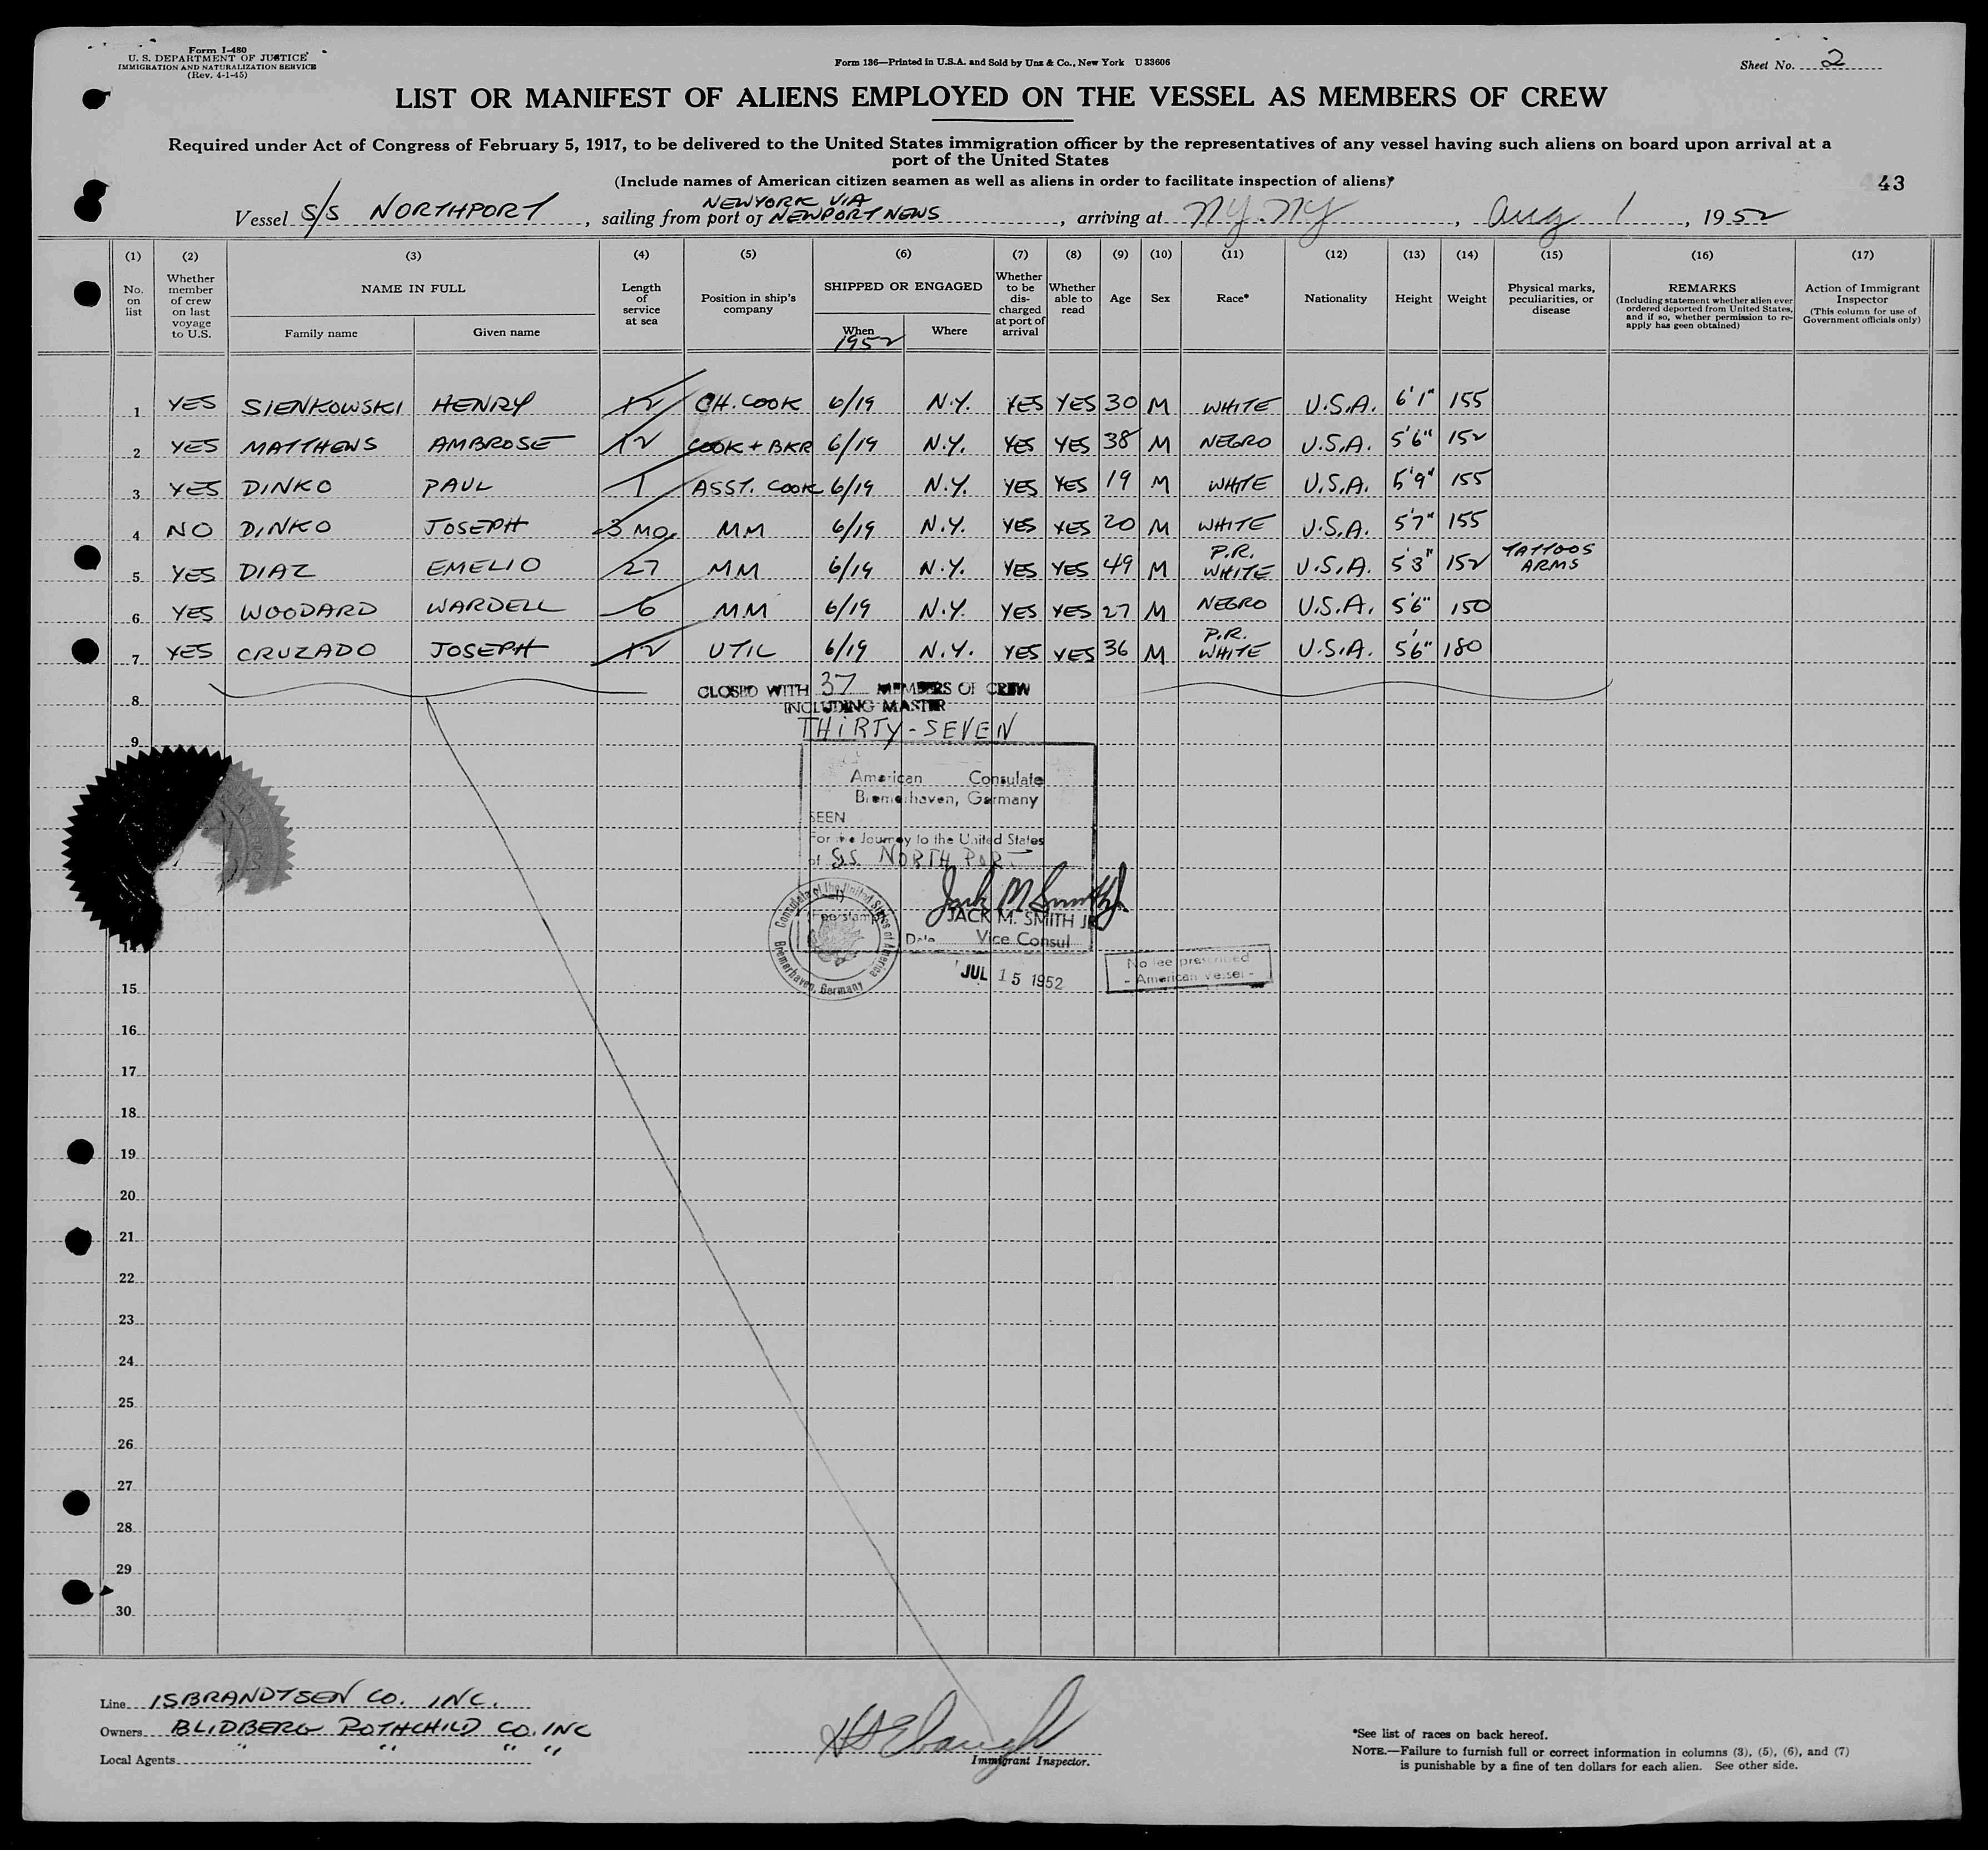 Form I-480
U. S. DEPARTMENT OF JUSTICE
IMMIGRATION AND NATURALIZATION SERVICE
(Rev. 4-1-45)
Form 136—Printed in U.S.A. and Sold by Unz & Co., New York U 33606
Sheet No. 2
LIST OR MANIFEST OF ALIENS EMPLOYED ON THE VESSEL AS MEMBERS OF CREW
Required under Act of Congress of February 5, 1917, to be delivered to the United States immigration officer by the representatives of any vessel having such aliens on board upon arrival at a
port of the United States
(Include names of American citizen seamen as well as aliens in order to facilitate inspection of aliens)
43
NEW YORK VIA
Vessel S/S NORTHPORT, sailing from port of NEWPORT NEWS, arriving at N.Y. N.Y., Aug 1, 1952
(1) (2) (3) (4) (5) (6) (7) (8) (9) (10) (11) (12) (13) (14) (15) (16) (17)
No. on list
Whether member of crew on last voyage to U.S.
NAME IN FULL
Family name
Given name
Length of service at sea
Position in ship's company
SHIPPED OR ENGAGED
When
1952
Where
Whether to be discharged at port of arrival
Whether able to read
Age
Sex
Race*
Nationality
Height
Weight
Physical marks, peculiarities, or disease
REMARKS
(Including statement whether alien ever ordered deported from United States, and if so, whether permission to re-apply has geen obtained)
Action of Immigrant Inspector
(This column for use of Government officials only)
1 YES SIENKOWSKI HENRY 12 CH. COOK 6/19 N.Y. YES YES 30 M WHITE U.S.A. 6'1" 155
2 YES MATTHEWS AMBROSE 12 COOK + BKR 6/19 N.Y. YES YES 38 M NEGRO U.S.A. 5'6" 152
3 YES DINKO PAUL 1 ASST. COOK 6/19 N.Y. YES YES 19 M WHITE U.S.A. 5'9" 155
4 NO DINKO JOSEPH 3 MO. MM 6/19 N.Y. YES YES 20 M WHITE U.S.A. 5'7" 155
5 YES DIAZ EMELIO 27 MM 6/19 N.Y. YES YES 49 M P.R. WHITE U.S.A. 5'3" 152 TATTOOS ARMS
6 YES WOODARD WARDELL 6 MM 6/19 N.Y. YES YES 27 M NEGRO U.S.A. 5'6" 150
7 YES CRUZADO JOSEPH 12 UTIL 6/19 N.Y. YES YES 36 M P.R. WHITE U.S.A. 5'6" 180
8
CLOSED WITH 37 MEMBERS OF CREW
INCLUDING MASTER
THIRTY-SEVEN
9
American Consulate
Bremerhaven, Germany
SEEN
For the Journey to the United States
of S.S. NORTHPORT
Jack M Smith Jr
JACK M. SMITH JR
Vice Consul
Date
JUL 15 1952
Consulate of the United States of America
Bremerhaven, Germany
No fee prescribed
- American Vessel -
14
15
16
17
18
19
20
21
22
23
24
25
26
27
28
29
30
Line ISBRANDTSEN CO. INC.
Owners BLIDBERG ROTHCHILD CO. INC
Local Agents " " " "
Immigrant Inspector.
*See list of races on back hereof.
NOTE.—Failure to furnish full or correct information in columns (3), (5), (6), and (7)
is punishable by a fine of ten dollars for each alien. See other side.